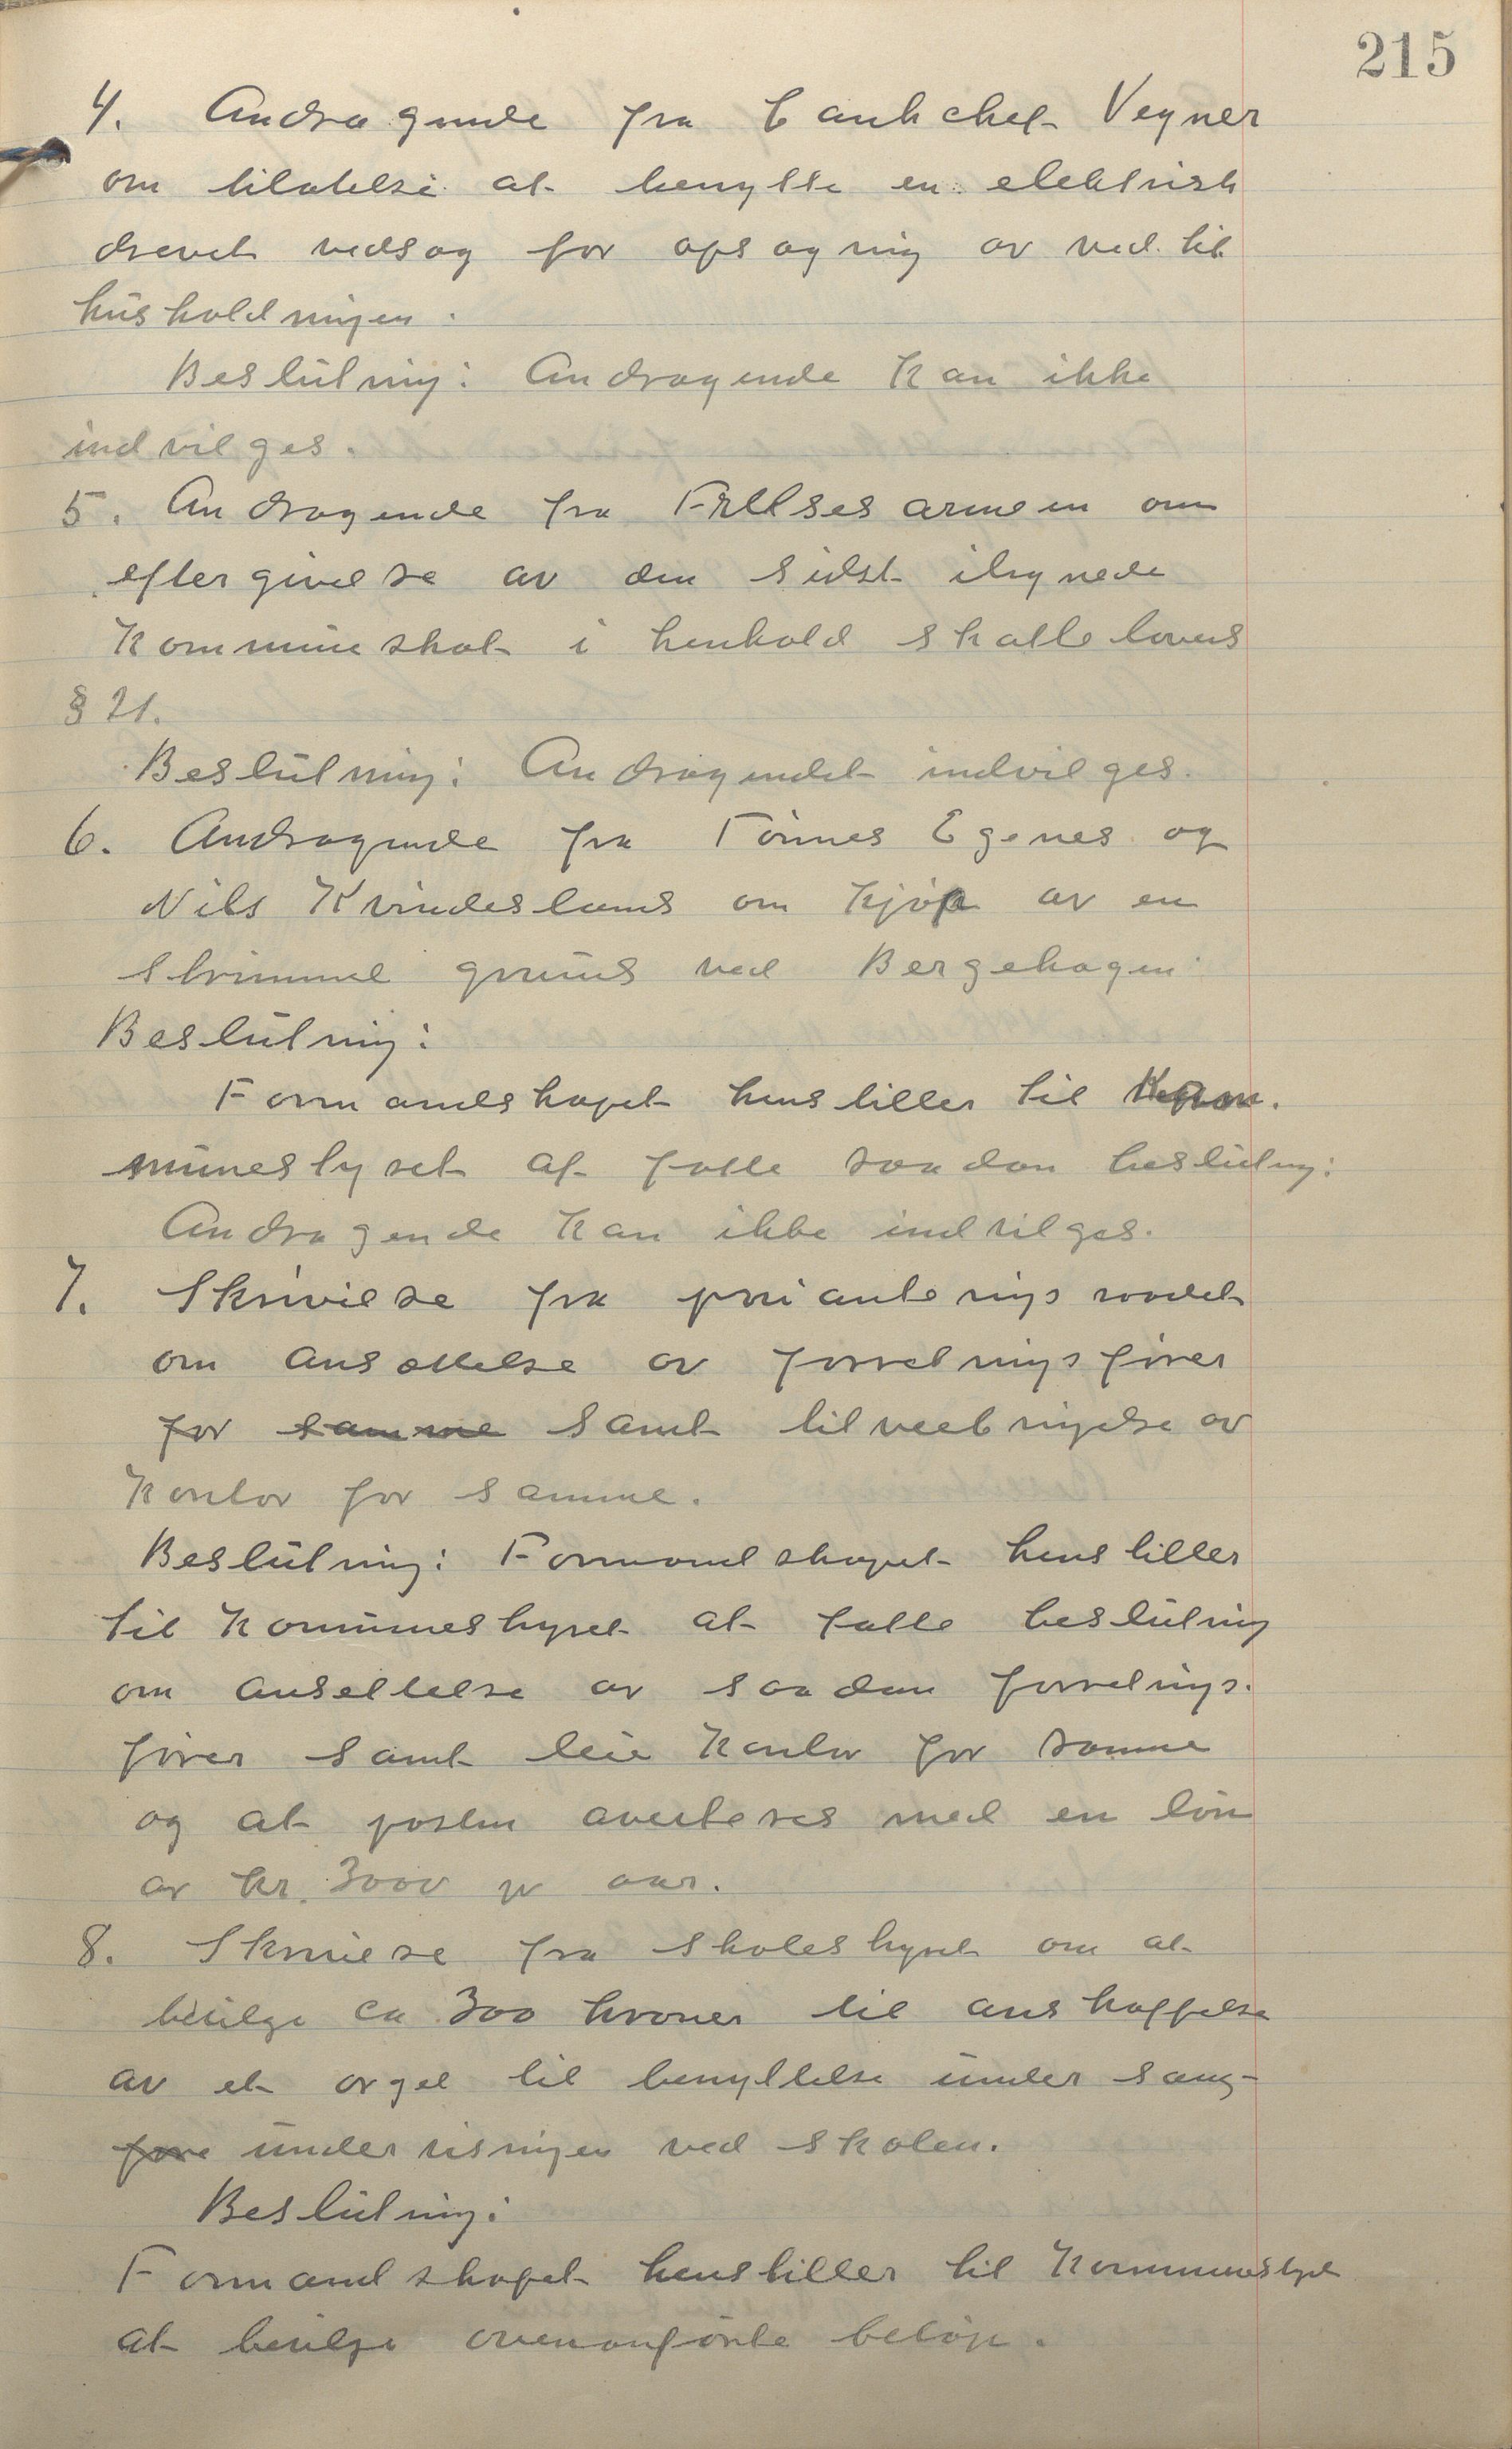 215
4. Andragende fra bankchef Vegner
om tilatelse at benytte en elektrisk
drevet vedsag for opsagning av ved til
husholdningen.
Beslutning: Andragende kan ikke
indvilges.
5. Andragende fra Frelsesarmeen om
eftergivelse av den sidst ilignede
kommuneskat i henhold skattelovens
§ 21.
Beslutning: Andragendet indvilges.
6. Andragende fra Tönnes Egenes og
Nils Kvindesland om kjöp av en
strimmel grund ved Bergehagen
Beslutning:
Formandskapet henstiller til Kom-
munestyret at fatte saadan beslutning:
Andragende kan ikke indvilges.
7. Skrivelse fra provianteringsraadet
om ansættelse av forretningsförer
for samme samt tilveiebringelse av
kontor for samme.
Beslutning: Formandskapet henstiller
til Kommunestyret at fatte beslutning
om ansettelse av saadan forretnings-
förer samt leie kontor for samme
og at posten averteres med en lön
av kr. 3000 pr aar.
8. Skrivelse fra skolestyret om at
bevilge ca 300 kroner til anskaffelse
av et orgel til benyttelse under sang-
undervisningen ved skolen.
Beslutning:
Formandskapet henstiller til Kommunestyret
at bevilge ovenanförte belöp.